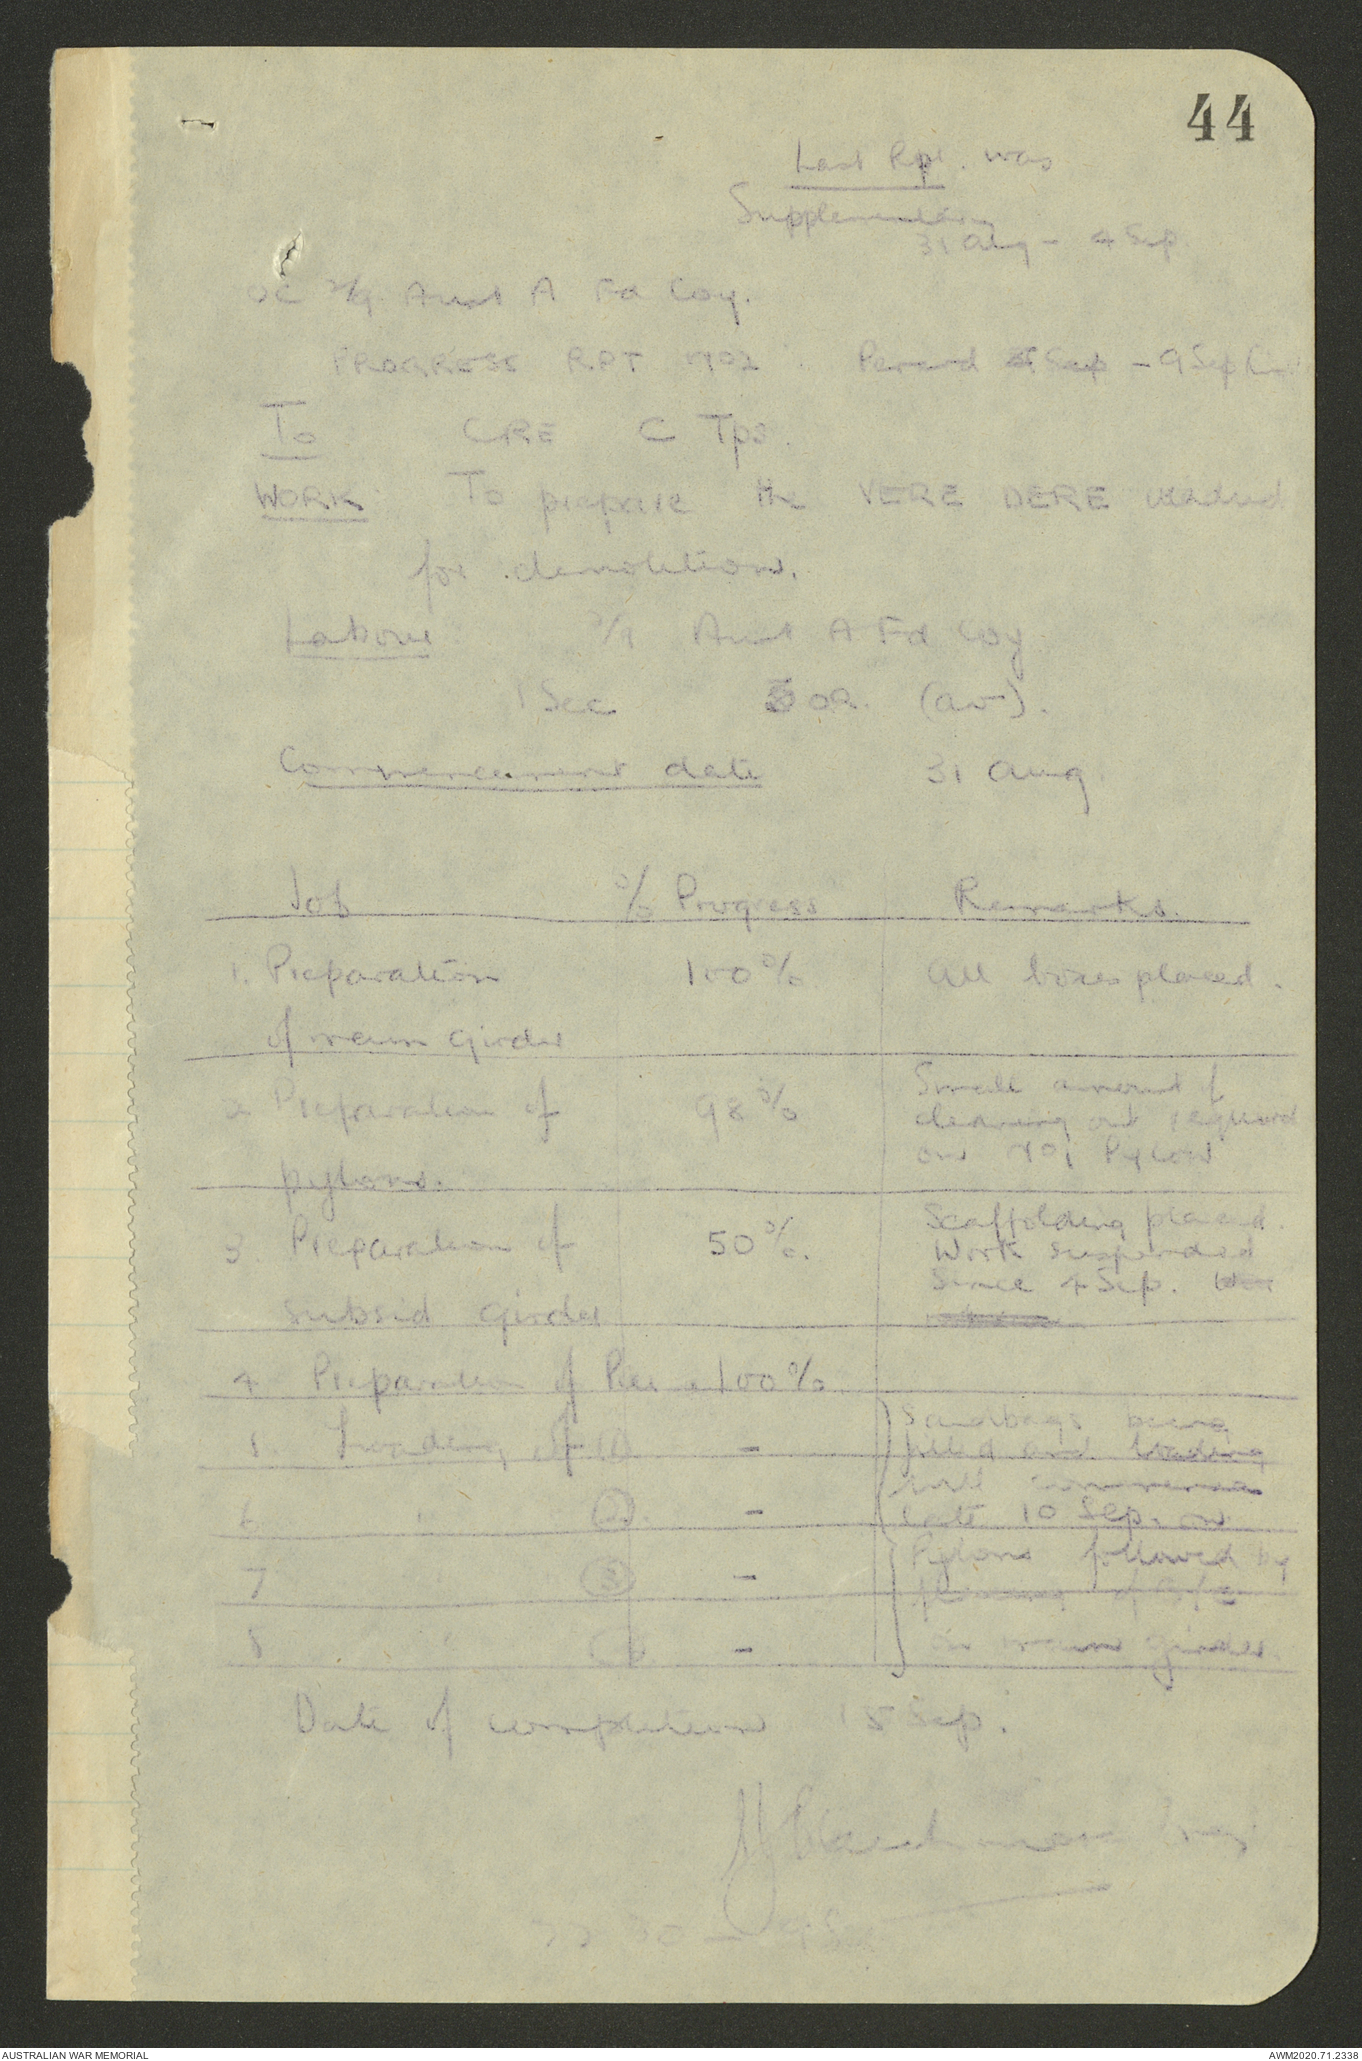 44
Last Rpt. was
Supplementary
31 Aug - 4 Sep.
OC 2/9 Aust A Fd Coy.
PROGRESS RPT No 2 Period Sep - 9 Sep
To CRE C Tps.
WORK To prepare the VERE DERE viaduct
for demolition.
Labour 2/9 Aust A Fd Coy
1 Sec OR. (av).
Commencement date 31 Aug.
Job % Progress Remarks.
1. Preparation 100% All boxes placed.
of main girder
2 Preparation of 98% Small amount of
clearing out required
on No 1 Pylon
pylons.
3 Preparation of 50%. Scaffolding placed.
Work suspended
Since 4 Sep.
subsid girder
4 Preparation of Pier 100%
5. Loading of (1) - Sandbags being
filled and loading
6 " (2) - will commence
late 10 Sep. on
7 (3) - Pylons followed by
placing of
8 " - on main girder.
Date of completion 15 Sep.
AUSTRALIAN WAR MEMORIAL
AWM2020.71.2338